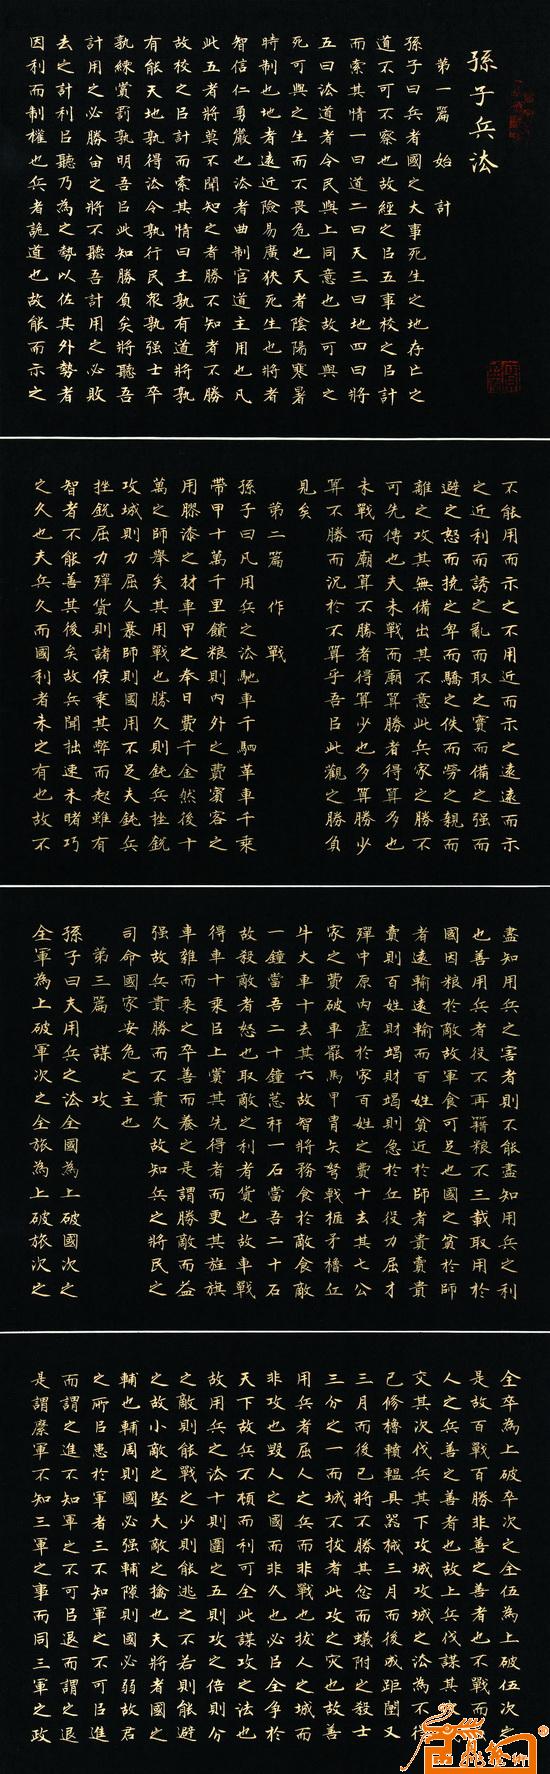 孫子兵法
第一篇 始計
孫子曰兵者國之大事死生之地存亡之
道不可不察也故經之㠯五事校之㠯計
而索其情一曰道二曰天三曰地四曰將
五曰法道者令民與上同意也故可與之
死可與之生而不畏危也天者陰陽寒暑
時制也地者遠近險易廣狹死生也將者
智信仁勇嚴也法者曲制官道主用也凡
此五者將莫不聞知之者勝不知者不勝
故校之㠯計而索其情曰主孰有道將孰
有能天地孰得法令孰行民衆孰强士卒
孰練賞罰孰明吾㠯此知勝負矣將聽吾
計用之必勝留之將不聽吾計用之必敗
去之計利㠯聽乃為之勢以佐其外勢者
因利而制權也兵者詭道也故能而示之
不能用而示之不用近而示之遠遠而示
之近利而誘之亂而取之實而備之强而
避之怒而撓之卑而驕之佚而勞之親而
離之攻其無備出其不意此兵家之勝不
可先傳也夫未戰而廟算勝者得算多也
未戰而廟算不勝者得算少也多算勝少
算不勝而況於不算乎吾㠯此觀之勝負
見矣
第二篇 作戰
孫子曰凡用兵之法馳車千駟革車千乘
帶甲十萬千里饋粮則內外之費賓客之
用膠漆之材車甲之奉日費千金然後十
萬之師舉矣其用戰也勝久則鈍兵挫銳
攻城則力屈久暴師則國用不足夫鈍兵
挫銳屈力殫貨則諸侯乘其弊而起雖有
智者不能善其後矣故兵聞拙速未睹巧
之久也夫兵久而國利者未之有也故不
盡知用兵之害者則不能盡知用兵之利
也善用兵者役不再籍粮不三載取用於
國因粮於敵故軍食可足也國之貧於師
者遠輸遠輸而百姓貧近於師者貴賣貴
賣則百姓財竭財竭則急於丘役力屈才
殫中原內虛於家百姓之費十去其七公
家之費破車罷馬甲胄矢弩戟楯矛櫓丘
牛大車十去其六故智將務食於敵食敵
一鐘當吾二十鐘秆一石當吾二十石
故殺敵者怒也取敵之利者貨也故車戰
得車十乘㠯上賞其先得者而更其旌旗
車雜而乘之卒善而養之是謂勝敵而益
强故兵貴勝而不貴久故知兵之將民之
司命國家安危之主也
第三篇 謀攻
孫子曰夫用兵之法全國為上破國次之
全軍為上破軍次之全旅為上破旅次之
全卒為上破卒次之全伍為上破伍次之
是故百戰百勝非善之善者也不戰而
人之兵善之善者也故上兵伐謀其
交其次伐兵其下攻城攻城之法為不得
已修櫓轒轀具器械三月而後成距闉又
三月而後已將不勝其忿而蟻附之殺士
三分之一而城不拔者此攻之灾也故善
用兵者屈人之兵而非戰也拔人之城而
非攻也毀人之國而非久也必㠯全爭於
天下故兵不頓而利可全此謀攻之法也
故用兵之法十則圍之五則攻之倍則分
之敵則能戰之少則能逃之不若則能避
之故小敵之堅大敵之擒也夫將者國之
輔也輔周則國必强輔隙則國必弱故君
之所㠯患於軍者三不知軍之不可㠯進
而謂之進不知軍之不可㠯退而謂之退
是謂縻軍不知三軍之事而同三軍之政